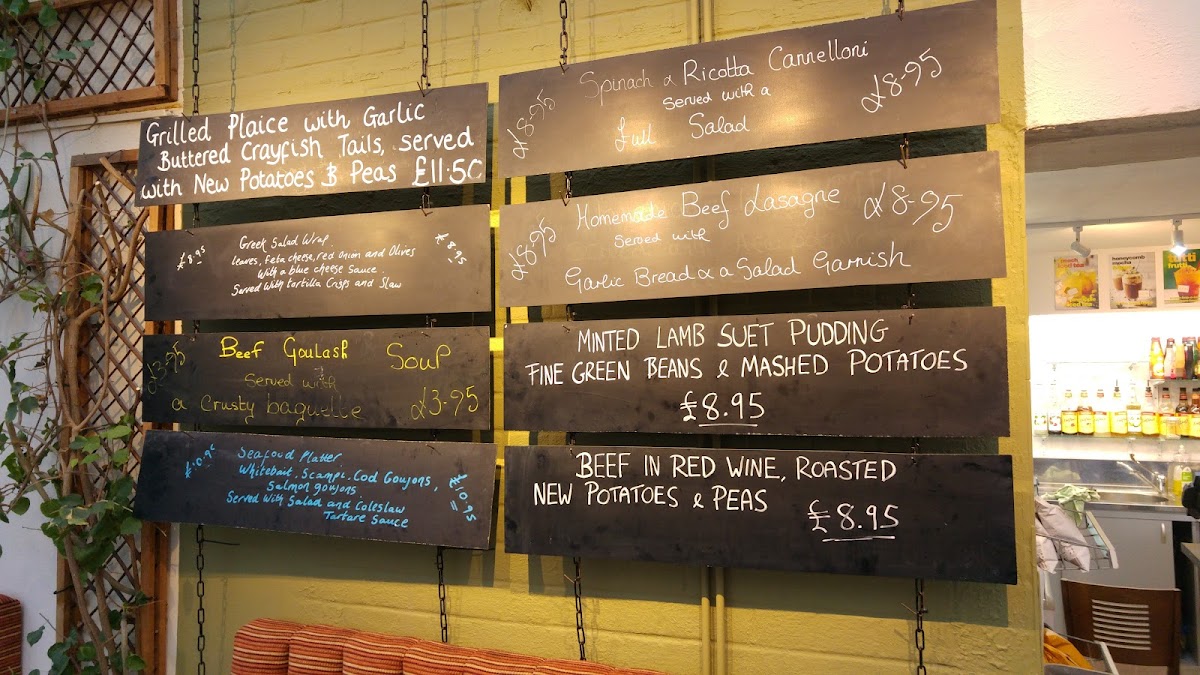 Grilled Plaice with Garlic
Buttered Crayfish Tails, served
with New Potatoes & Peas £11.50
£8.95 Greek Salad Wrap £8.95
leaves, feta cheese, red onion and Olives
With a blue cheese sauce.
Served With tortilla Crisps and Slaw
£3.95 Beef Goulash Soup
Served with
a Crusty baguette £3.95
£10.95 Seafood Platter
Whitebait, Scampi, Cod Goujons, £10.95
Salmon goujons
Served With Salad and Coleslaw
Tartare Sauce
£8.95 Spinach & Ricotta Cannelloni £8.95
Served with a
Full Salad
£8.95 Homemade Beef Lasagne £8.95
Served with
Garlic Bread & a Salad Garnish
MINTED LAMB SUET PUDDING
FINE GREEN BEANS & MASHED POTATOES
£8.95
BEEF IN RED WINE, ROASTED
NEW POTATOES & PEAS £8.95
honeycomb
mocha